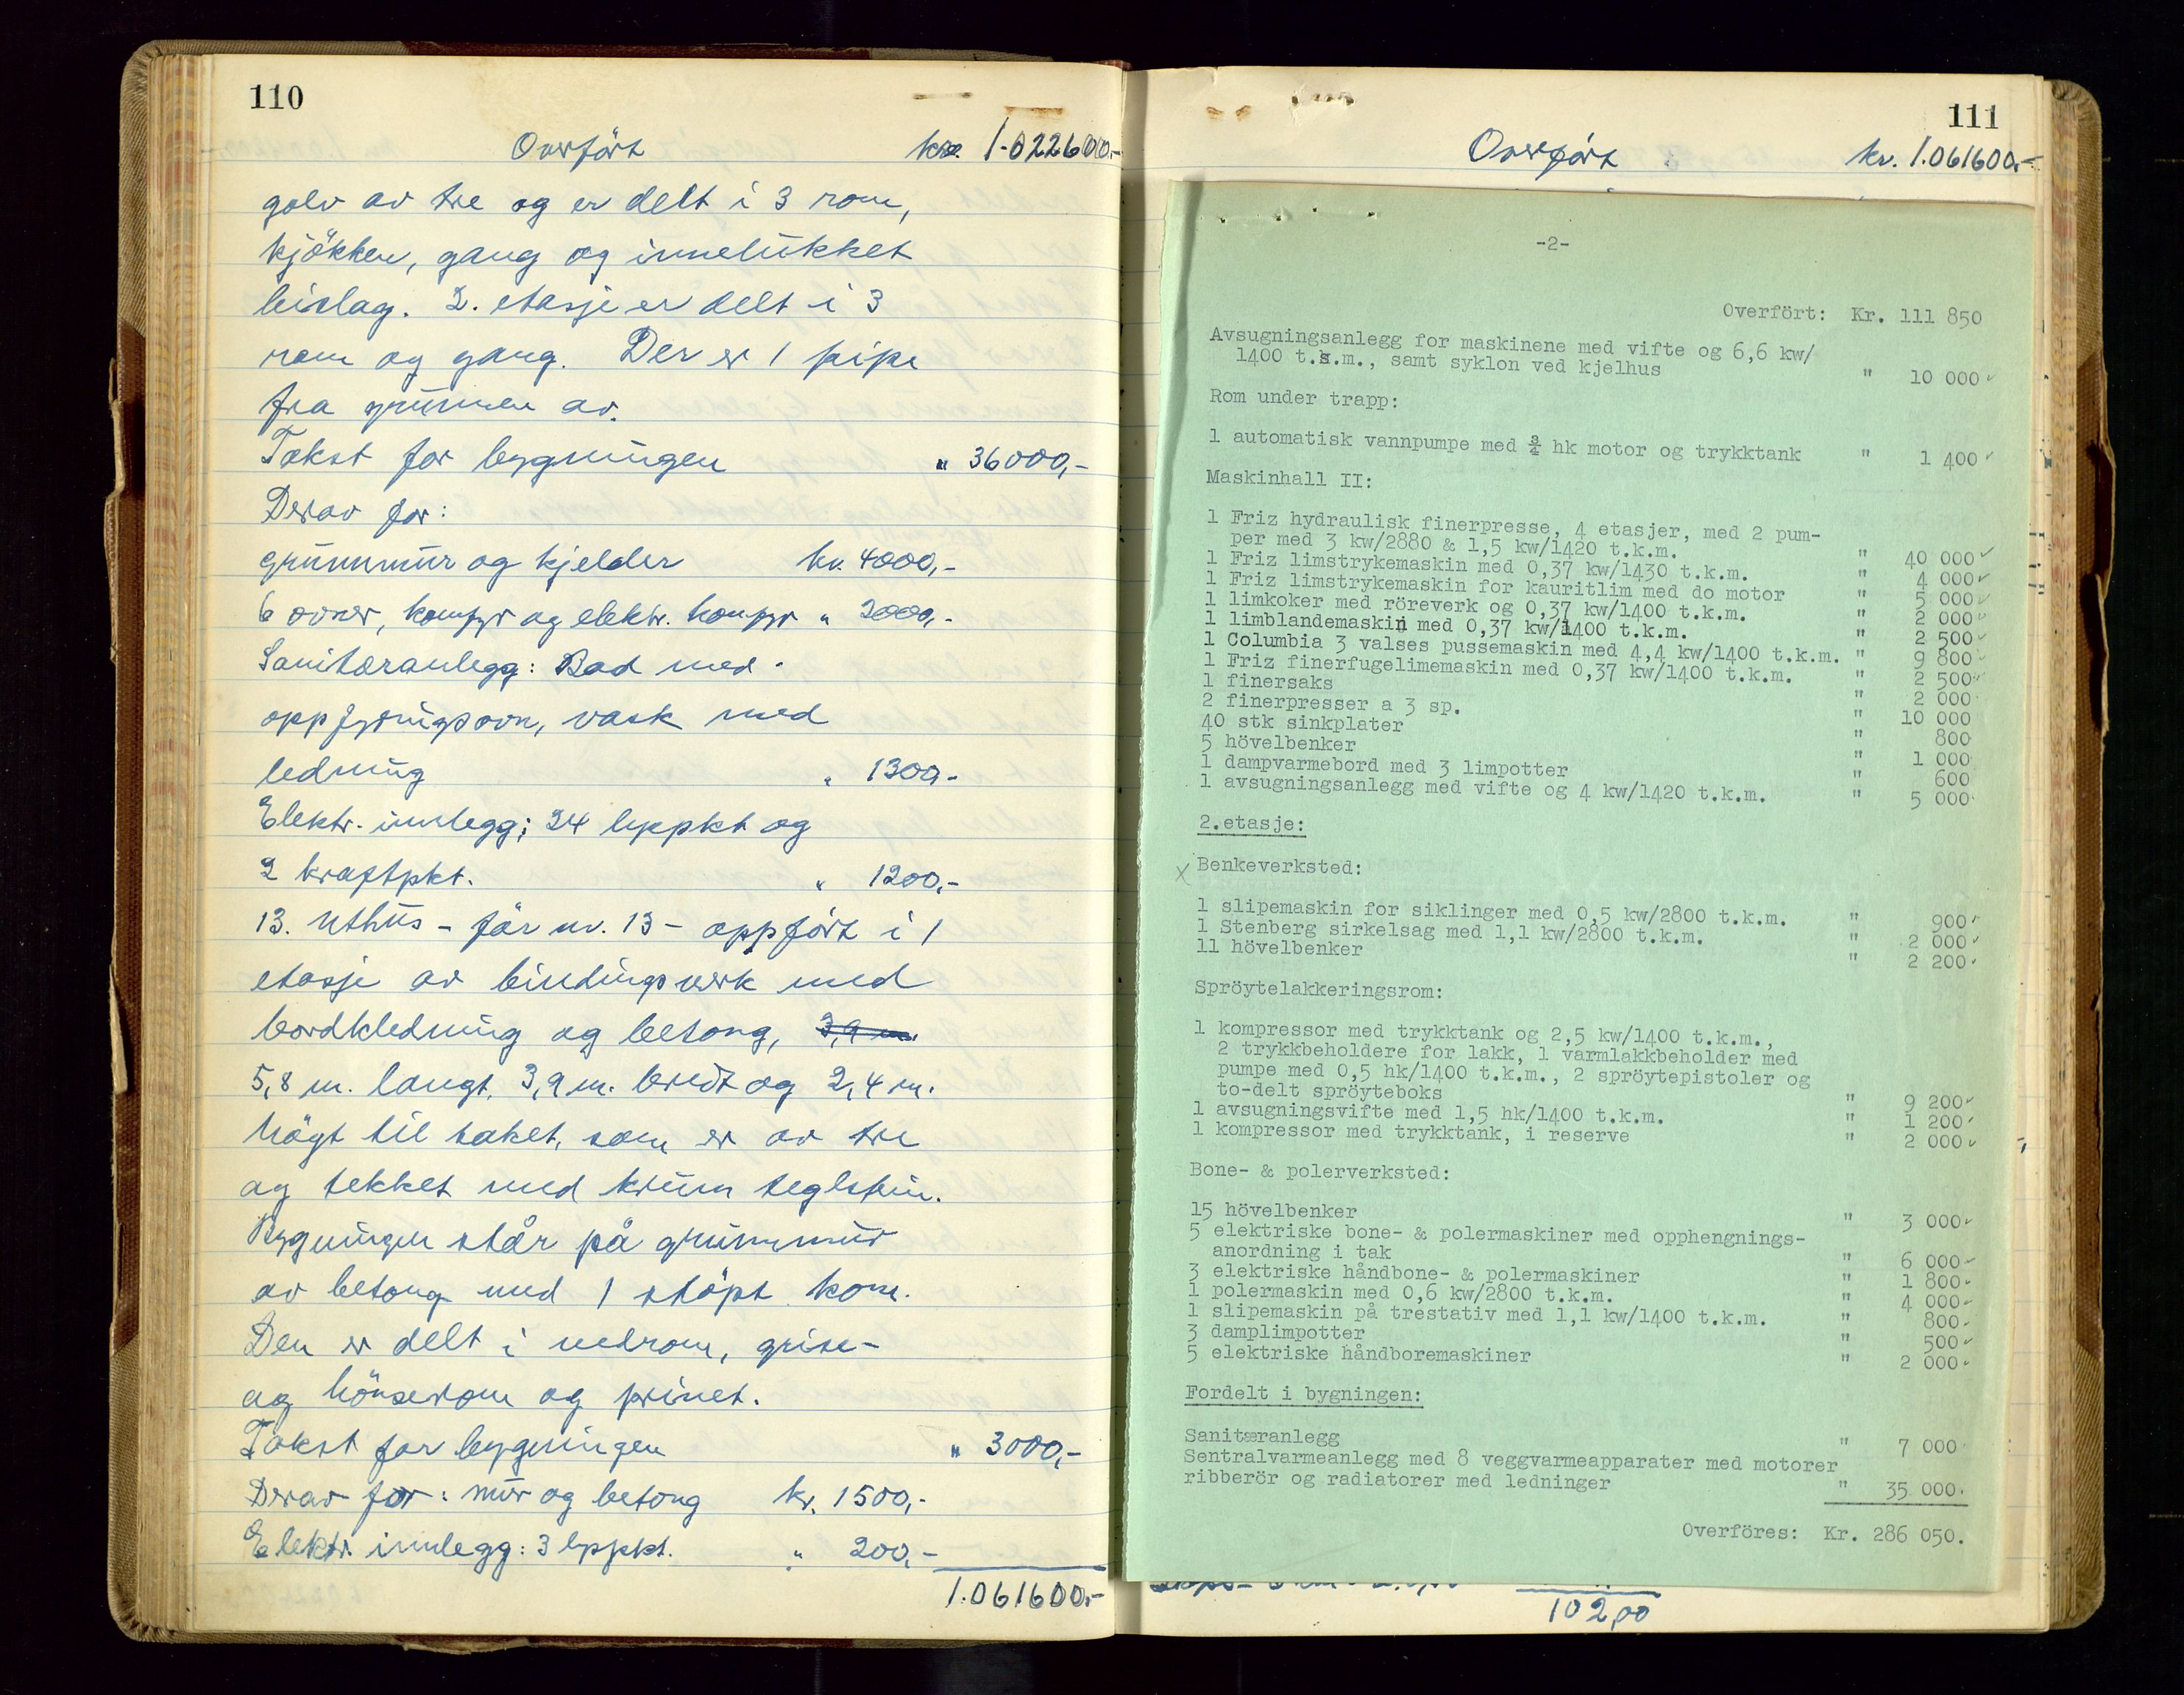 110
Overfört kr. 1.022600,-
golv av tre og er delt i 3 rom,
kjökken, gang og innelukket
bislag. 2. etasje er delt i 3
rom og gang. Der er 1 pipe
fra grunnen av.
Takst for bygningen " 36000,-
Derav for:
grunnmur og kjelder kr. 4000,-
6 ovner, komfyr og elektr. komfyr " 2000,-
Sanitæranlegg: Bad med
oppfyringsovn, vask med
ledning " 1300,-
Elektr. innlegg; 24 lyspkt og
2 kraftpkt. " 1200,-
13. Uthus - för nr. 13 - oppfört i 1
etasje av bindingsverk med
bordkledning og betong, 3,9 m.
5,8 m. langt, 3,9 m. bredt og 2,4 m.
högt til taket, som er av tre
og tekket med krum teglstein.
Bygningen står på grunnmur
av betong med 1 stöpt kom.
Den er delt i vedrom, grise-
og hönserom og privet.
Takst for bygningen " 3000,-
Derav for: mur og betong kr. 1500,-
Elektr. innlegg: 3 lyspkt. " 200,-
1.061600,-
111
Overfört kr. 1.061600,-
-2-
Overfört: Kr. 111 850
Avsugningsanlegg for maskinene med vifte og 6,6 kw/
1400 t.s.m., samt syklon ved kjelhus " 10 000
Rom under trapp:
1 automatisk vannpumpe med ¾ hk motor og trykktank " 1 400
Maskinhall II:
1 Friz hydraulisk finerpresse, 4 etasjer, med 2 pum-
per med 3 kw/2880 & 1,5 kw/1420 t.k.m. " 40 000
1 Friz limstrykemaskin med 0,37 kw/1430 t.k.m. " 4 000
1 Friz limstrykemaskin for kauritlim med do motor " 5 000
1 limkoker med röreverk og 0,37 kw/1400 t.k.m. " 2 000
1 limblandemaskin med 0,37 kw/1400 t.k.m. " 2 500
1 Columbia 3 valses pussemaskin med 4,4 kw/1400 t.k.m. " 9 800
1 Friz finerfugelimemaskin med 0,37 kw/1400 t.k.m. " 2 500
1 finersaks " 2 000
2 finerpresser a 3 sp. " 10 000
40 stk sinkplater " 800
5 hövelbenker " 1 000
1 dampvarmebord med 3 limpotter " 600
1 avsugningsanlegg med vifte og 4 kw/1420 t.k.m. " 5 000
2.etasje:
x Benkeverksted:
1 slipemaskin for siklinger med 0,5 kw/2800 t.k.m. " 900
1 Stenberg sirkelsag med 1,1 kw/2800 t.k.m. " 2 000
11 hövelbenker " 2 200
Spröytelakkeringsrom:
1 kompressor med trykktank og 2,5 kw/1400 t.k.m.,
2 trykkbeholdere for lakk, 1 varmlakkbeholder med
pumpe med 0,5 hk/1400 t.k.m., 2 spröytepistoler og
to-delt spröyteboks " 9 200
1 avsugningsvifte med 1,5 hk/1400 t.k.m. " 1 200
1 kompressor med trykktank, i reserve " 2 000
Bone- & polerverksted:
15 hövelbenker " 3 000
5 elektriske bone- & polermaskiner med opphengnings-
anordning i tak " 6 000
3 elektriske håndbone- & polermaskiner " 1 800
1 polermaskin med 0,6 kw/2800 t.k.m. " 4 000
1 slipemaskin på trestativ med 1,1 kw/1400 t.k.m. " 800
3 damplimpotter " 500
5 elektriske håndboremaskiner " 2 000
Fordelt i bygningen:
Sanitæranlegg " 7 000
Sentralvarmeanlegg med 8 veggvarmeapparater med motorer
ribberör og radiatorer med ledninger " 35 000.
Overföres: Kr. 286 050.
102,00